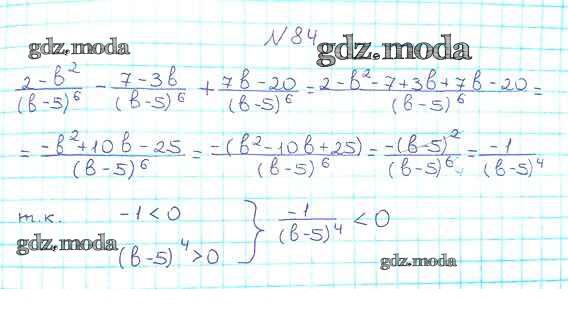 N84
gdz.moda gdz.moda
(2-b²)/(b-5)⁶ - (7-3b)/(b-5)⁶ + (7b-20)/(b-5)⁶ = (2-b²-7+3b+7b-20)/(b-5)⁶ =
= (-b²+10b-25)/(b-5)⁶ = (-(b²-10b+25))/(b-5)⁶ = (-(b-5)²)/(b-5)⁶ = (-1)/(b-5)⁴
т.к. -1<0 } (-1)/(b-5)⁴ < 0
gdz.moda (b-5)⁴>0
gdz.moda